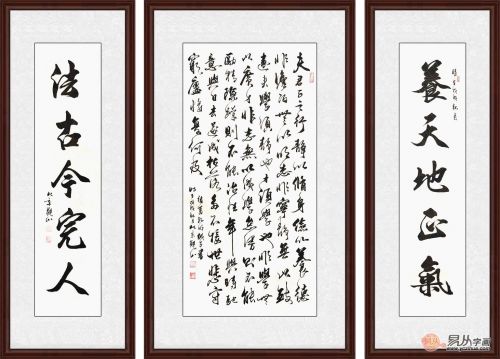 養天地正氣
夫君子之行靜以脩身儉以養德
非澹泊無以明志非寧靜無以致
遠夫學須靜也才須學也非學無
以廣才非志無以成學淫慢則不能
勵精險躁則不能治性年與時馳
意與日去遂成枯落多不接世悲守
窮廬將復何及
法古今完人
易从字画
www.yczihua.com